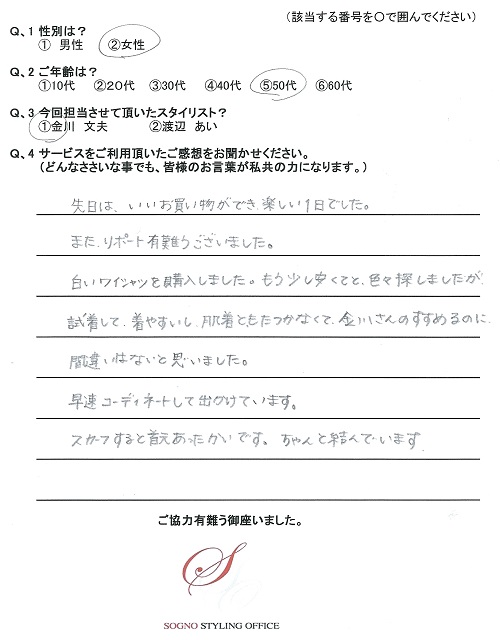 (該当する番号を○で囲んでください)
Q、1 性別は?
① 男性 ②女性
Q、2 ご年齢は?
①10代 ②20代 ③30代 ④40代 ⑤50代 ⑥60代
Q、3 今回担当させて頂いたスタイリスト?
①金川 文夫 ②渡辺 あい
Q、4 サービスをご利用頂いたご感想をお聞かせください。
(どんなささいな事でも、皆様のお言葉が私共の力になります。)
先日は、いいお買い物ができ、楽しい1日でした。
また、リポート有難うございました。
白いワイシャツを購入しました。もう少し安くてと、色々探しましたが
試着して、着やすいし、肌着ともたつかなくて、金川さんのすすめるのに
間違いはないと思いました。
早速コーディネートして出かけています。
スカーフすると首元あったかいです。ちゃんと結んでいます
ご協力有難う御座いました。
S
SOGNO STYLING OFFICE